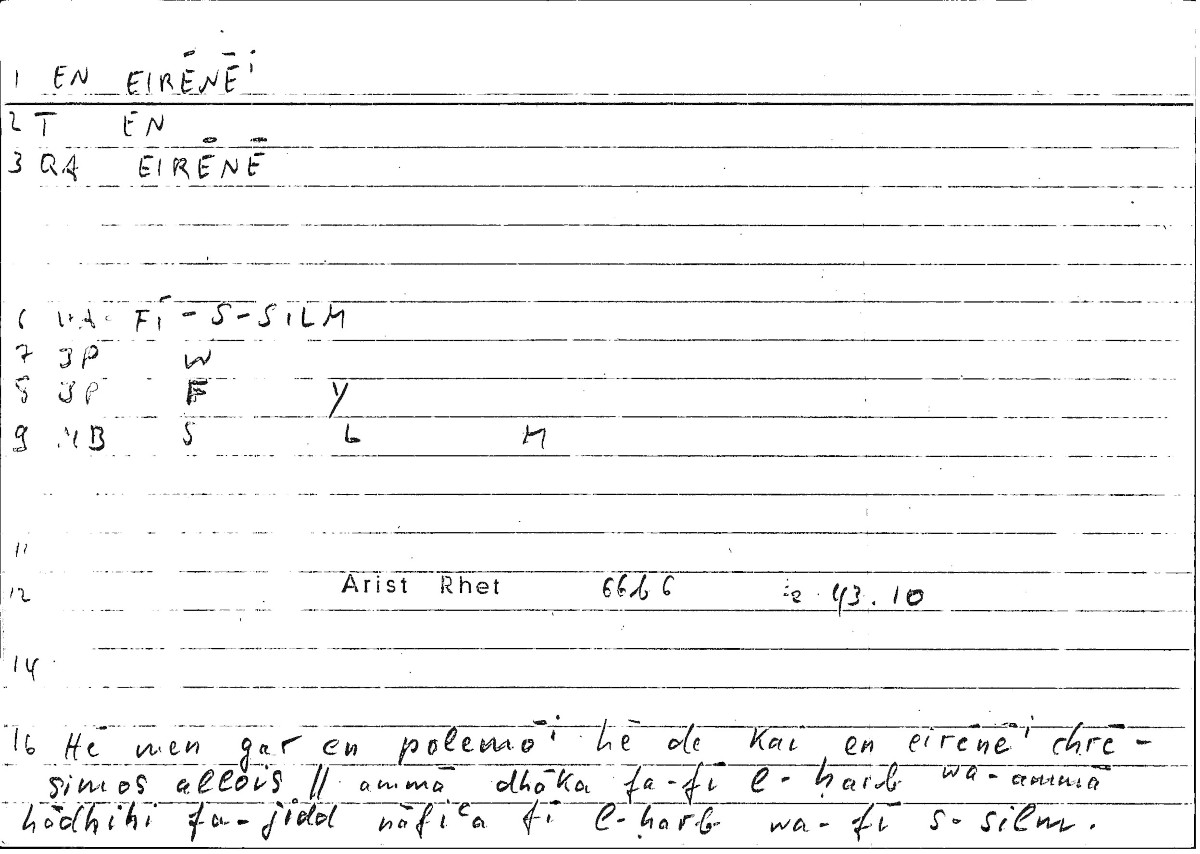 1 EN EIRĒNĒⁱ
2 T EN
3 QA EIRĒNĒ
6 FĪ-S-SILM
7 JP W
8 JP F Y
9 B S L M
11
12 Arist Rhet 66b6 43.10
14
16 Hē men gar en polemōⁱ hē de kai en eirēnēⁱ chrē-
simos allois // ammā dhāka fa-fī l-ḥarb wa-ammā
hādhihi fa-jidd nāfiʿa fī l-ḥarb wa-fī s-silm.